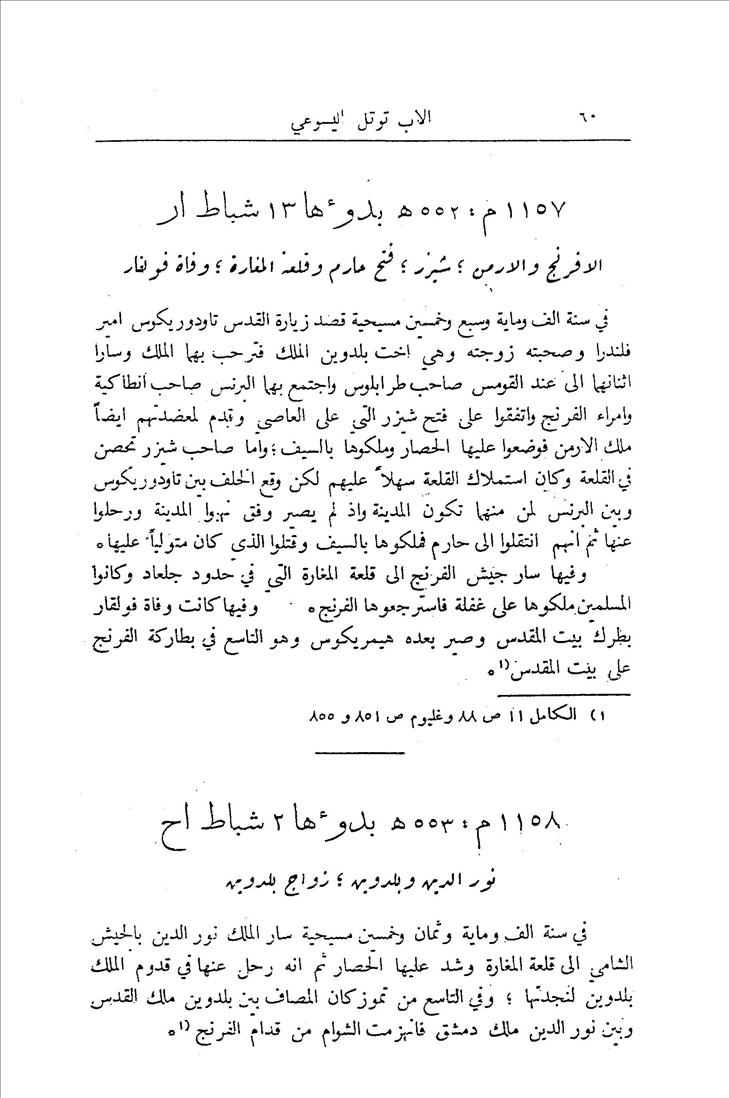 ٦٠ الاب توتل اليسوعي
١١٥٧ م : ٥٥٢ ه بدوءها ١٣ شباط ار
الافرنج والارمن ؛ شيزر ؛ فتح حارم وقلعة المغارة ؛ وفاة فولقار
في سنة الف وماية وسبع وخمسين مسيحية قصد زيارة القدس تاودوريكوس امير
فلندرا وصحبته زوجته وهي اخت بلدوين الملك فترحب بها الملك وسارا
اثنانها الى عند القومس صاحب طرابلوس واجتمع بها البرنس صاحب انطاكية
وامراء الفرنج واتفقوا على فتح شيزر التي على العاصي وقدم لمعضدتهم ايضاً
ملك الارمن فوضعوا عليها الحصار وملكوها بالسيف ؛ واما صاحب شيزر تحصن
في القلعة وكان استملاك القلعة سهلاً عليهم لكن وقع الخلف بين تاودوريكوس
وبين البرنس لمن منهما تكون المدينة واذ لم يصير وفق نهبوا المدينة ورحلوا
عنها ثم انهم انتقلوا الى حارم فملكوها بالسيف وقتلوا الذي كان متولياً عليها ٥
وفيها سار جيش الفرنج الى قلعة المغارة التي في حدود جلعاد وكانوا
المسلمين ملكوها على غفلة فاسترجعوها الفرنج ٥ وفيها كانت وفاة فولقار
بطرك بيت المقدس وصير بعده هيمريكوس وهو التاسع في بطاركة الفرنج
على بيت المقدس ١) ٥
١) الكامل ١١ ص ٨٨ وغليوم ص ٨٥١ و ٨٥٥
١١٥٨ م : ٥٥٣ ه بدوءها ٢ شباط اح
نور الدين وبلدوين ؛ زواج بلدوين
في سنة الف وماية وثمان وخمسين مسيحية سار الملك نور الدين بالجيش
الشامي الى قلعة المغارة وشد عليها الحصار ثم انه رحل عنها في قدوم الملك
بلدوين لنجدتها ؛ وفي التاسع من تموز كان المصاف بين بلدوين مالك القدس
وبين نور الدين ملك دمشق فانهزمت الشوام من قدام الفرنج ١) ٥